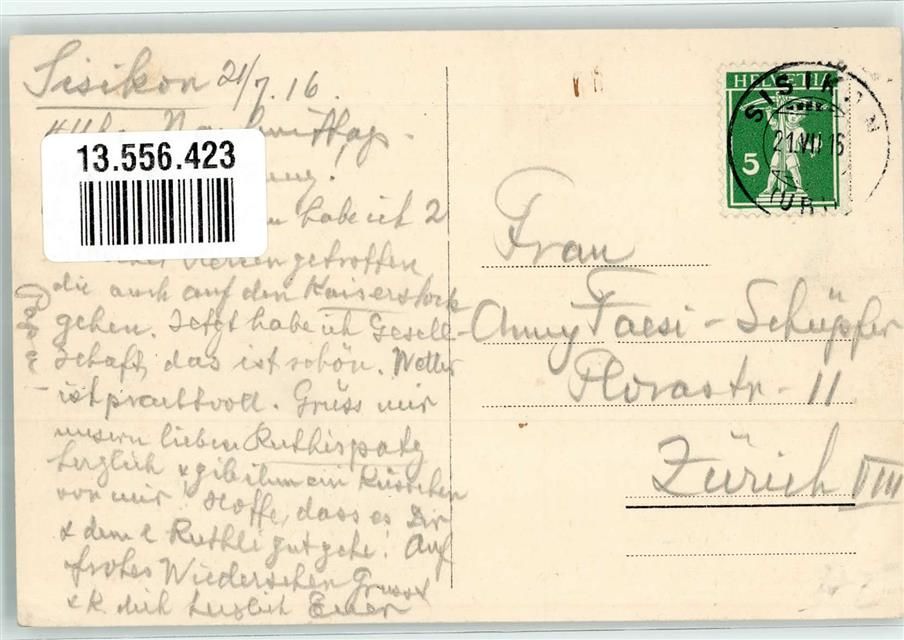 Sisikon 21/7.16.
Nachmittag.
13.556.423
habe ich 2
getroffen
die auch auf den Kaiserstock
gehen. Jetzt habe ich Gesell-
schaft, das ist schön. Wetter
ist prachtvoll. Grüss mir
unsern lieben Ruthispatz
herzlich & gib ihm ein Küsschen
von mir. Hoffe, dass es Dir
& dem l Ruthli gut gehe! Auf
frohes Wiedersehen Grüsst
& K. dich herzlich Euer
Papa
HELVETIA
5
SISIKON
21.VII.16
(URI)
Frau
Anny Faesi-Schüpfer
Florastr. 11
Zürich VIII